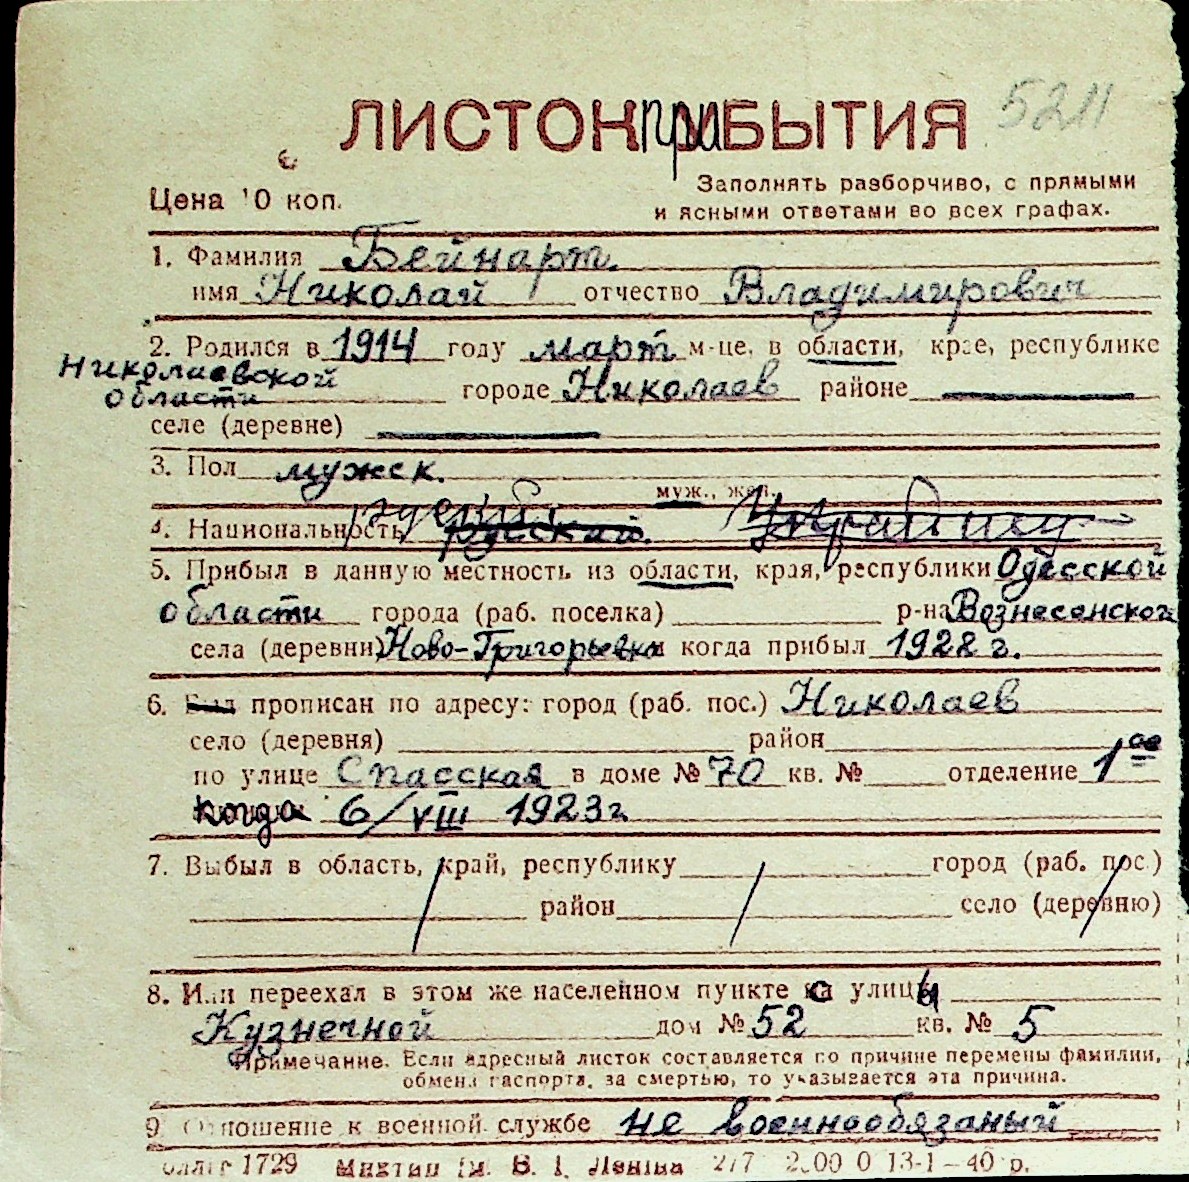 5211
ЛИСТОК приБЫТИЯ
Цена 10 коп.
Заполнять разборчиво, с прямыми
и ясными ответами во всех графах.
1. Фамилия Бейнарт.
имя Николай отчество Владимирович
2. Родился в 1914 году март м-це, в области, крае, республике
Николаевской области городе Николаев районе —
селе (деревне) —
3. Пол мужск.
муж., жен.
4. Национальность русский русский. Украинец
5. Прибыл в данную местность из области, края, республики Одесской
области города (раб. поселка) р-на Вознесенского
села (деревни) Ново-Григорьевка когда прибыл 1922 г.
6. Был прописан по адресу: город (раб. пос.) Николаев
село (деревня) район
по улице Спасская в доме № 70 кв. № отделение 1ое
когда 6/VIII 1923 г.
7. Выбыл в область, край, республику город (раб. пос.)
район село (деревню)
8. Или переехал в этом же населенном пункте с улицы
Кузнечной дом № 52 кв. № 5
Примечание. Если адресный листок составляется по причине перемены фамилии,
обмена паспорта, за смертью, то указывается эта причина.
9 Отношение к военной службе не военнообязаный
1729 В. І. Леніна 2/7 13-1-40 р.